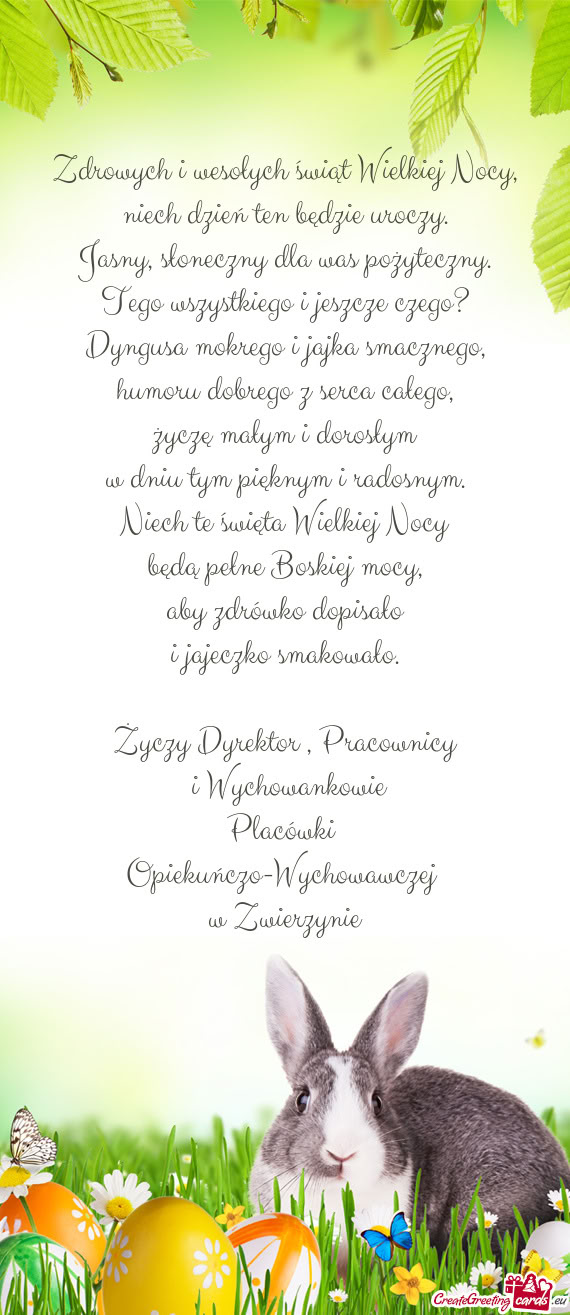 Zdrowych i wesołych świąt Wielkiej Nocy,
niech dzień ten będzie uroczy.
Jasny, słoneczny dla was pożyteczny.
Tego wszystkiego i jeszcze czego?
Dyngusa mokrego i jajka smacznego,
humoru dobrego z serca całego,
życzę małym i dorosłym
w dniu tym pięknym i radosnym.
Niech te święta Wielkiej Nocy
będą pełne Boskiej mocy,
aby zdrówko dopisało
i jajeczko smakowało.
Życzy Dyrektor , Pracownicy
i Wychowankowie
Placówki
Opiekuńczo-Wychowawczej
w Zwierzynie
CreateGreetingcards.eu